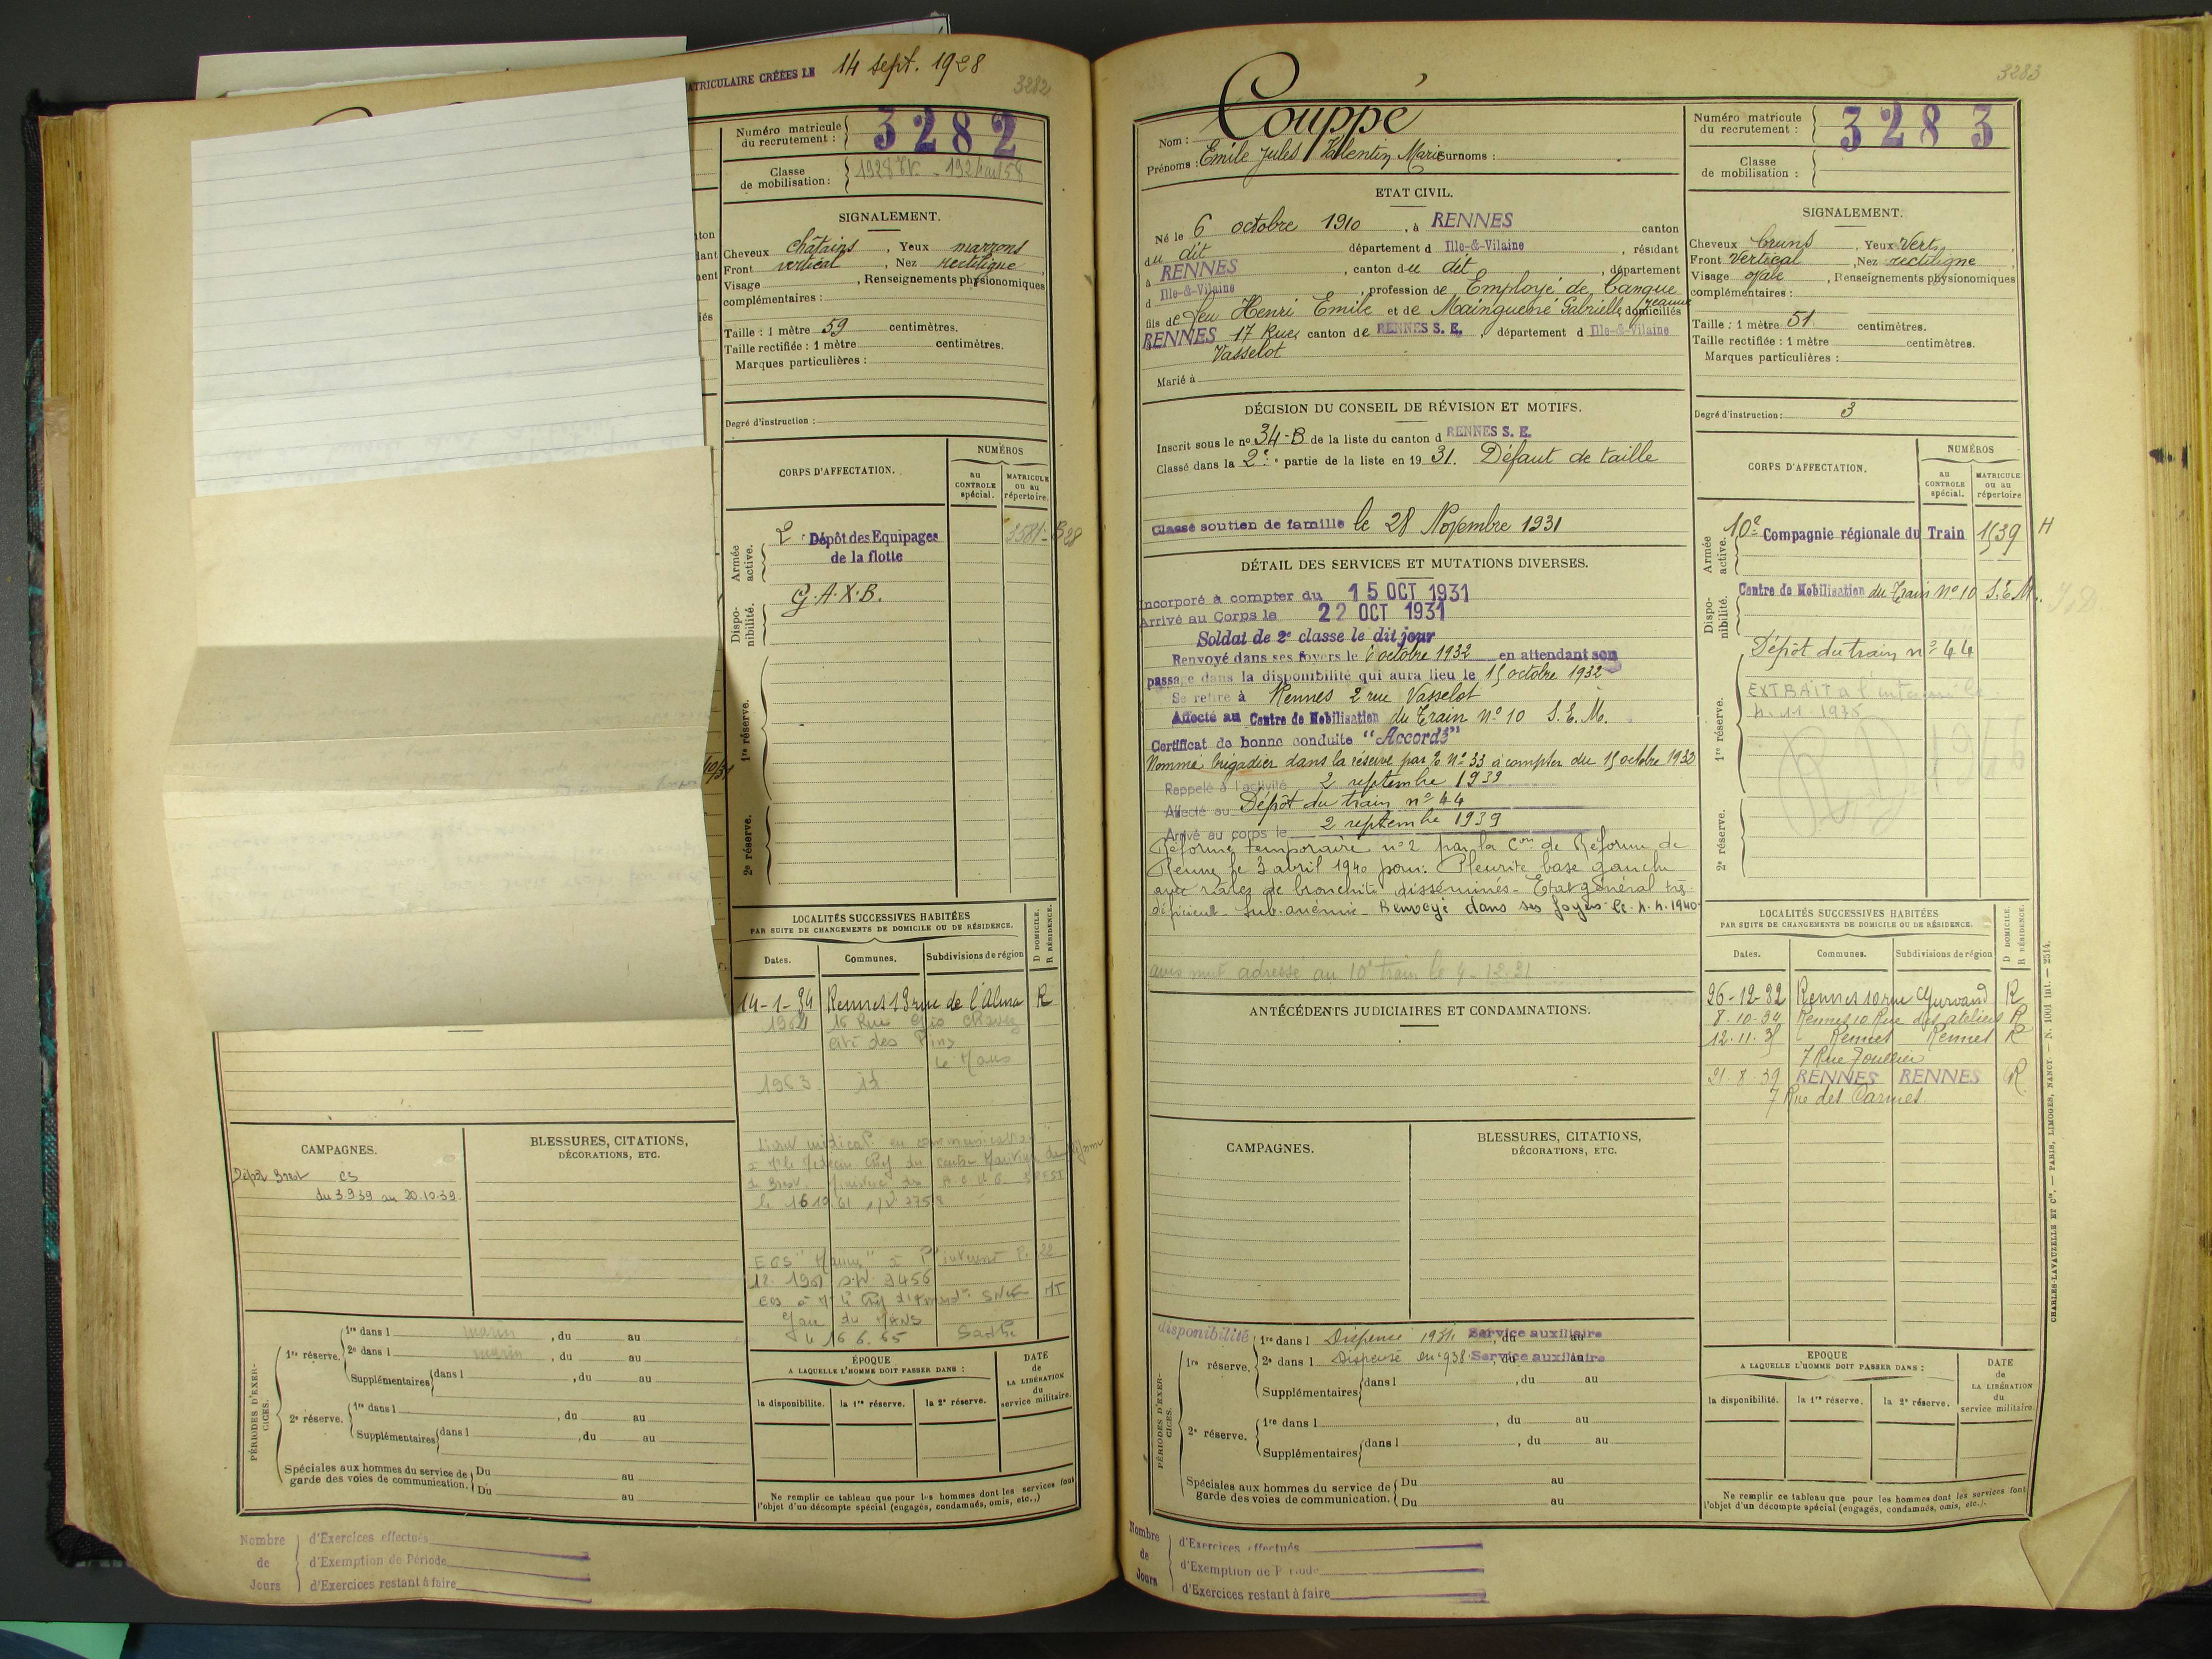 MATRICULAIRE CRÉÉES LE 14 sept. 1928
3282
Numéro matricule du recrutement : 3282
Classe de mobilisation :
SIGNALEMENT.
Cheveux châtains, Yeux marrons
Front vertical, Nez rectiligne,
Visage , Renseignements physionomiques
complémentaires :
Taille : 1 mètre 59 centimètres.
Taille rectifiée : 1 mètre centimètres.
Marques particulières :
Degré d'instruction :
CORPS D'AFFECTATION.
NUMÉROS
au CONTROLE spécial.
MATRICULE ou au répertoire.
Armée active.
2e Dépôt des Equipages
de la flotte
Dispo-nibilité.
G.A.X.B.
1re réserve.
2e réserve.
LOCALITÉS SUCCESSIVES HABITÉES
PAR SUITE DE CHANGEMENTS DE DOMICILE OU DE RÉSIDENCE.
D DOMICILE.
R RÉSIDENCE.
Dates. Communes. Subdivisions de région
14-1-34 Rennes 13 rue de l'Alma R
cité des Pins
le Mans
1963
CAMPAGNES.
Dépôt Brest CS
du 3.9.39 au 20.10.39.
BLESSURES, CITATIONS,
DÉCORATIONS, ETC.
PÉRIODES D'EXER-CICES.
1re réserve. 1re dans l marin , du au
2e dans l marin , du au
Supplémentaires dans l , du au
2e réserve. 1re dans l , du au
Supplémentaires dans l , du au
Spéciales aux hommes du service de garde des voies de communication. Du au
Du au
ÉPOQUE
A LAQUELLE L'HOMME DOIT PASSER DANS :
la disponibilité. la 1re réserve. la 2e réserve.
DATE de LA LIBÉRATION du service militaire.
Ne remplir ce tableau que pour les hommes dont les services font
l'objet d'un décompte spécial (engagés, condamnés, omis, etc..)
Nombre de Jours
d'Exercices effectués
d'Exemption de Période
d'Exercices restant à faire
3283
Nom : Couppé
Prénoms : Emile Jules Valentin Marie Surnoms :
ETAT CIVIL.
Né le 6 octobre 1910, à RENNES canton
du dit département d Ille-&-Vilaine, résidant
à RENNES, canton du dit, département
d Ille-&-Vilaine, profession de Employé de banque
fils de feu Henri Emile et de Mainguené Gabrielle Jeanne domiciliés
RENNES 17 Rue canton de RENNES S. E., département d Ille-&-Vilaine
Vasselot
Marié à
DÉCISION DU CONSEIL DE RÉVISION ET MOTIFS.
Inscrit sous le no 34-B de la liste du canton d RENNES S. E.
Classé dans la 2e partie de la liste en 1931. Défaut de taille
Classé soutien de famille le 28 Novembre 1931
DÉTAIL DES SERVICES ET MUTATIONS DIVERSES.
Incorporé à compter du 15 OCT 1931
Arrivé au Corps le 22 OCT 1931
Soldat de 2e classe le dit jour
Renvoyé dans ses foyers le 6 octobre 1932 en attendant son
passage dans la disponibilité qui aura lieu le 15 octobre 1932
Se retire à Rennes 2 rue Vasselot
Affecté au Centre de Mobilisation du Train No 10 S.E.M.
Certificat de bonne conduite "Accordé"
Nommé brigadier dans la réserve par No 33 à compter du 15 octobre 1932
Rappelé à l'activité 2 septembre 1939
Affecté au Dépôt du train no 44
Arrivé au corps le 2 septembre 1939
Réforme temporaire no 2 par la Con de Réforme de
Rennes le 3 avril 1940 pour : Pleurite base gauche
avec râles de bronchite disséminés - Etat général très
déficient - Sub-anémie - Renvoyé dans ses foyers le 4.4.1940
avis mut adressé au 10e train le 4-12-31
ANTÉCÉDENTS JUDICIAIRES ET CONDAMNATIONS.
CAMPAGNES.
BLESSURES, CITATIONS,
DÉCORATIONS, ETC.
PÉRIODES D'EXER-CICES.
disponibilité 1re dans l Dispensé Service auxiliaire
1re réserve. 2e dans l Dispensé en 1938 Service auxiliaire
Supplémentaires dans l , du au
2e réserve. 1re dans l , du au
Supplémentaires dans l , du au
Spéciales aux hommes du service de garde des voies de communication. Du au
Du au
Nombre de Jours
d'Exercices effectués
d'Exemption de Période
d'Exercices restant à faire
Numéro matricule du recrutement : 3283
Classe de mobilisation :
SIGNALEMENT.
Cheveux bruns, Yeux Verts,
Front Vertical, Nez rectiligne,
Visage ovale, Renseignements physionomiques
complémentaires :
Taille : 1 mètre 51 centimètres.
Taille rectifiée : 1 mètre centimètres.
Marques particulières :
Degré d'instruction : 3
CORPS D'AFFECTATION.
NUMÉROS
au CONTROLE spécial.
MATRICULE ou au répertoire
Armée active.
10e Compagnie régionale du Train 1539 H
Dispo-nibilité.
Centre de Mobilisation du Train No 10 S.E.M.
1re réserve.
Dépôt du train no 44
EXTRAIT à l'intéressé le
4.11.1935
2e réserve.
LOCALITÉS SUCCESSIVES HABITÉES
PAR SUITE DE CHANGEMENTS DE DOMICILE OU DE RÉSIDENCE.
D DOMICILE.
R RÉSIDENCE.
Dates. Communes. Subdivisions de région
26-12-32 Rennes 10 rue Gurvand R
8-10-34 Rennes 10 Rue des ateliers R
12.11.35 Rennes Rennes R
7 Rue Toullier
21.8.39 RENNES RENNES R
7 Rue des Carmes.
EPOQUE
A LAQUELLE L'HOMME DOIT PASSER DANS :
la disponibilité. la 1re réserve. la 2e réserve.
DATE de LA LIBÉRATION du service militaire.
Ne remplir ce tableau que pour les hommes dont les services font
l'objet d'un décompte spécial (engagés, condamnés, omis, etc.).
CHARLES-LAVAUZELLE ET Cie. — PARIS, LIMOGES, NANCY. — N. 1001 int. — 2514.